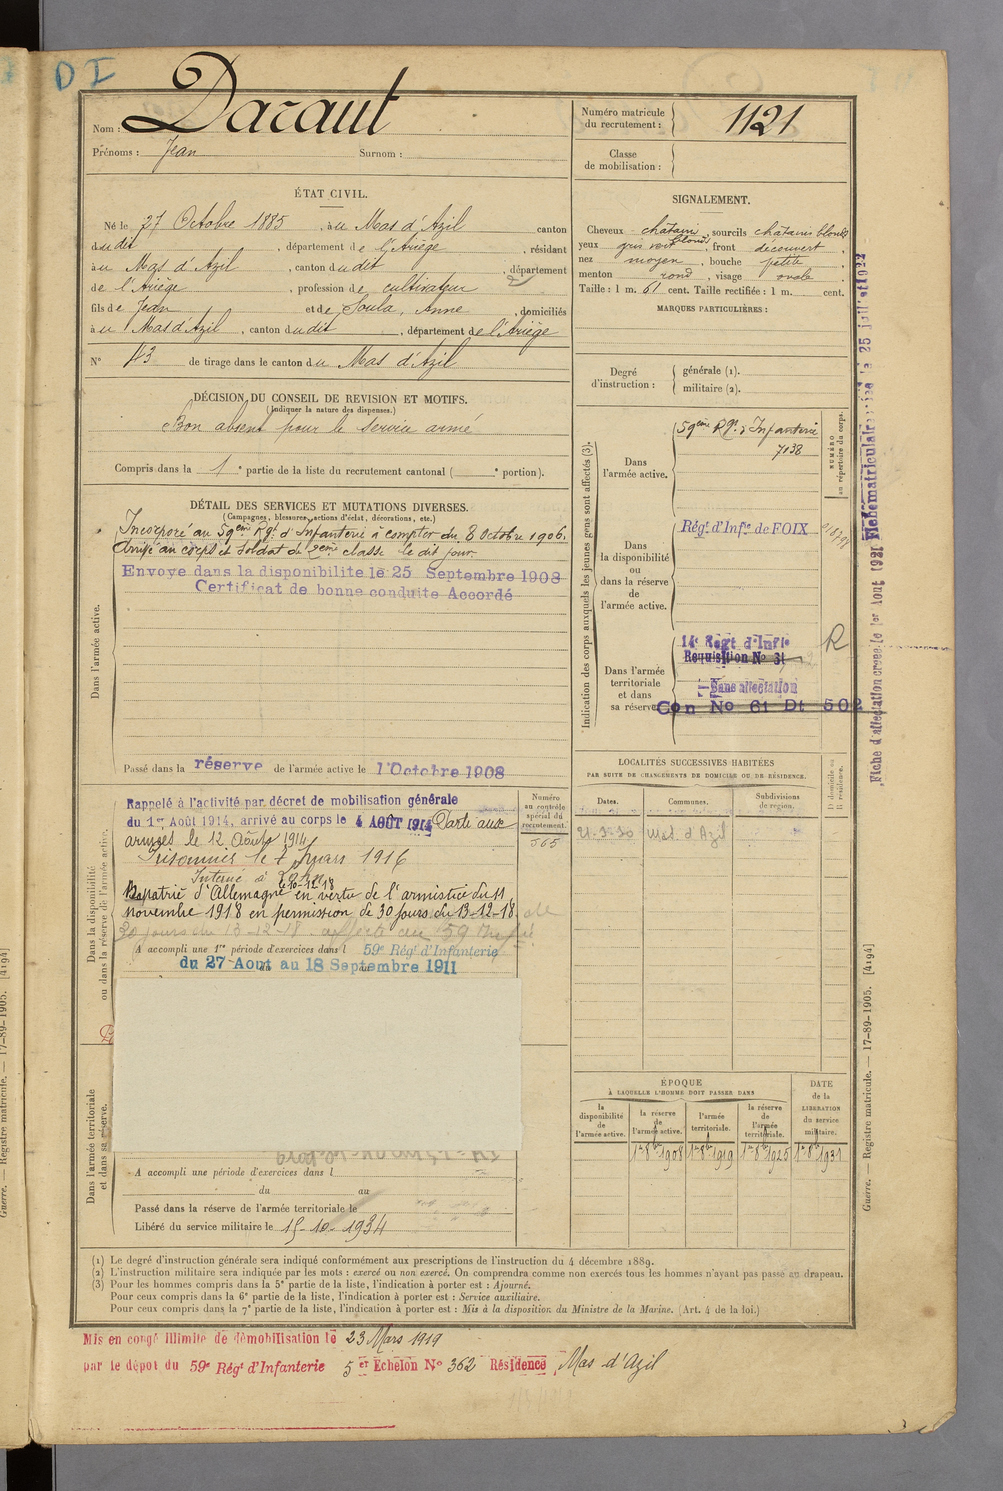 D I
Nom : Daraut
Prénoms : Jean Surnom :
Numéro matricule du recrutement : 1121
Classe de mobilisation :
ÉTAT CIVIL.
Né le 27 Octobre 1885, à u Mas d'Azil canton
du dit, département de l'Ariège, résidant
à u Mas d'Azil, canton du dit, département
de l'Ariège, profession de cultivateur
fils de Jean et de Soula, Anne, domiciliés
à u Mas d'Azil, canton du dit, département de l'Ariège
N° 43 de tirage dans le canton du Mas d'Azil
DÉCISION DU CONSEIL DE REVISION ET MOTIFS.
(Indiquer la nature des dispenses.)
Bon absent pour le service armé
Compris dans la 1e partie de la liste du recrutement cantonal ( e portion).
DÉTAIL DES SERVICES ET MUTATIONS DIVERSES.
(Campagnes, blessures, actions d'éclat, décorations, etc.)
Dans l'armée active.
Incorporé au 59ème Rgt d'Infanterie à compter du 8 Octobre 1906.
Arrivé au corps et soldat de 2ème classe le dit jour
Envoyé dans la disponibilité le 25 Septembre 1908
Certificat de bonne conduite Accordé
Passé dans la réserve de l'armée active le 1 Octobre 1908
Dans la disponibilité ou dans la réserve de l'armée active.
Rappelé à l'activité par décret de mobilisation générale
du 1er Août 1914, arrivé au corps le 4 AOÛT 1914 Parti aux
armées le 12 Août 1914
Prisonnier le 7 mars 1916
Interné à
le 10-12-18
Rapatrié d'Allemagne en vertu de l'armistice du 11
novembre 1918 en permission de 30 jours du 13-12-18. de
30 jours du 13-12-18 affecté au 59
A accompli une 1re période d'exercices dans l 59e Régt d'Infanterie
du 27 Aout au 18 Septembre 1911
Numéro au contrôle spécial du recrutement.
565
Dans l'armée territoriale et dans sa réserve.
A accompli une période d'exercices dans l
du au
Passé dans la réserve de l'armée territoriale le
Libéré du service militaire le 15-10-1934
SIGNALEMENT.
Cheveux châtain blonds, sourcils châtains blonds
yeux gris vert, front découvert
nez moyen, bouche petite
menton rond, visage ovale
Taille : 1 m. 61 cent. Taille rectifiée : 1 m. cent.
MARQUES PARTICULIÈRES :
Degré d'instruction : générale (1).
militaire (2).
Indication des corps auxquels les jeunes gens sont affectés (3).
NUMÉRO au répertoire du corps.
Dans l'armée active.
59ème Rgt d'Infanterie
7038
Dans la disponibilité ou dans la réserve de l'armée active.
Régt d'Infie de FOIX
Dans l'armée territoriale et dans sa réserve.
14e Regt d'Infie
Requisition No 61
Sans affectation
Con No 61 Dt 502
R
LOCALITÉS SUCCESSIVES HABITÉES
PAR SUITE DE CHANGEMENTS DE DOMICILE OU DE RÉSIDENCE.
Dates. Communes. Subdivisions de région. D domicile ou R résidence.
21-3-30 Mas d'Azil
ÉPOQUE
À LAQUELLE L'HOMME DOIT PASSER DANS
la disponibilité de l'armée active.
la réserve de l'armée active.
l'armée territoriale.
la réserve de l'armée territoriale.
DATE de la LIBÉRATION du service militaire.
1er 8bre 1908 1er 8bre 1919 1er 8bre 1925 1er 8bre 1931
(1) Le degré d'instruction générale sera indiqué conformément aux prescriptions de l'instruction du 4 décembre 1889.
(2) L'instruction militaire sera indiquée par les mots : exercé ou non exercé. On comprendra comme non exercés tous les hommes n'ayant pas passé au drapeau.
(3) Pour les hommes compris dans la 5e partie de la liste, l'indication à porter est : Ajourné.
Pour ceux compris dans la 6e partie de la liste, l'indication à porter est : Service auxiliaire.
Pour ceux compris dans la 7e partie de la liste, l'indication à porter est : Mis à la disposition du Ministre de la Marine. (Art. 4 de la loi.)
Mis en congé illimité de démobilisation le 23 Mars 1919
par le dépôt du 59e Régt d'Infanterie 5 er Echelon No 362 Résidence Mas d'Azil
Fiche d'affectation créée le 1er Aout 1921 Fiche matriculaire le 25 juillet 1922
Guerre. — Registre matricule. — 17-89-1905. [4194]
Guerre. — Registre matricule. — 17-89-1905. [4194]